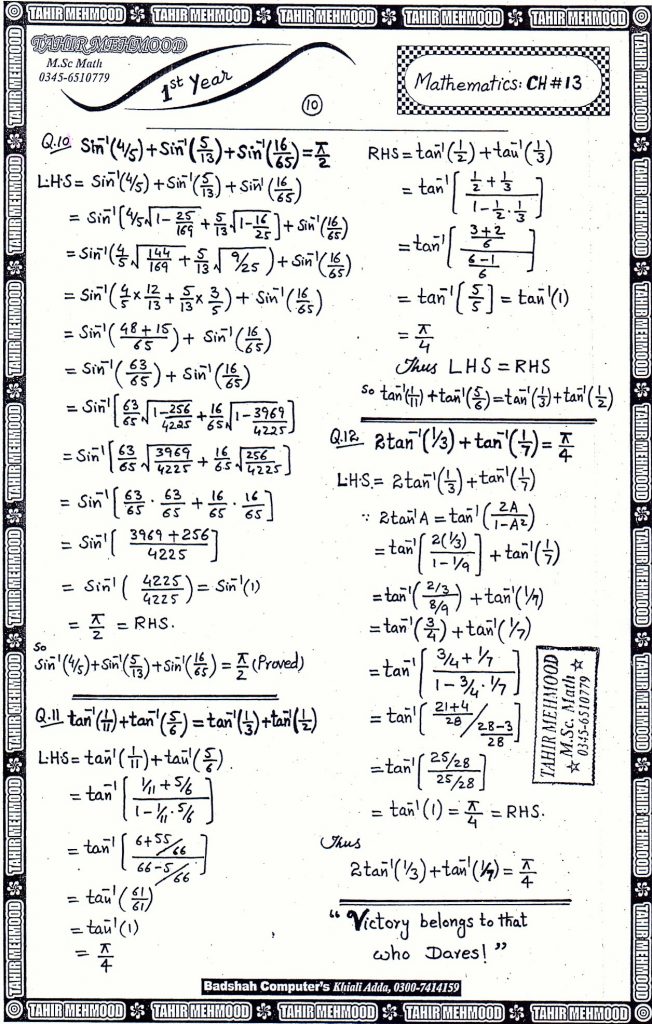 TAHIR MEHMOOD TAHIR MEHMOOD TAHIR MEHMOOD TAHIR MEHMOOD TAHIR MEHMOOD
TAHIR MEHMOOD
M.Sc Math
0345-6510779
1st Year
10
Mathematics: CH # 13
Q.10 Sin⁻¹(4/5)+Sin⁻¹(5/13)+Sin⁻¹(16/65)=π/2
L.H.S = Sin⁻¹(4/5)+Sin⁻¹(5/13)+Sin⁻¹(16/65)
= Sin⁻¹[4/5√(1-25/169)+5/13√(1-16/25)]+Sin⁻¹(16/65)
= Sin⁻¹(4/5√(144/169)+5/13√(9/25))+Sin⁻¹(16/65)
= Sin⁻¹(4/5×12/13+5/13×3/5)+Sin⁻¹(16/65)
= Sin⁻¹((48+15)/65)+Sin⁻¹(16/65)
= Sin⁻¹(63/65)+Sin⁻¹(16/65)
= Sin⁻¹[63/65√(1-256/4225)+16/65√(1-3969/4225)]
= Sin⁻¹[63/65√(3969/4225)+16/65√(256/4225)]
= Sin⁻¹[63/65·63/65+16/65·16/65]
= Sin⁻¹[(3969+256)/4225]
= Sin⁻¹(4225/4225)=Sin⁻¹(1)
= π/2 = RHS.
So
Sin⁻¹(4/5)+Sin⁻¹(5/13)+Sin⁻¹(16/65)=π/2 (Proved)
Q.11 tan⁻¹(1/11)+tan⁻¹(5/6)=tan⁻¹(1/3)+tan⁻¹(1/2)
L.H.S = tan⁻¹(1/11)+tan⁻¹(5/6)
= tan⁻¹[(1/11+5/6)/(1-1/11·5/6)]
= tan⁻¹[((6+55)/66)/((66-5)/66)]
= tan⁻¹(61/61)
= tan⁻¹(1)
= π/4
RHS = tan⁻¹(1/2)+tan⁻¹(1/3)
= tan⁻¹[(1/2+1/3)/(1-1/2·1/3)]
= tan⁻¹[((3+2)/6)/((6-1)/6)]
= tan⁻¹[5/5]=tan⁻¹(1)
= π/4
Thus LHS = RHS
So tan⁻¹(1/11)+tan⁻¹(5/6)=tan⁻¹(1/3)+tan⁻¹(1/2)
Q.12 2tan⁻¹(1/3)+tan⁻¹(1/7)=π/4
L.H.S.= 2tan⁻¹(1/3)+tan⁻¹(1/7)
∵ 2tan⁻¹A=tan⁻¹(2A/(1-A²))
= tan⁻¹[2(1/3)/(1-1/9)]+tan⁻¹(1/7)
= tan⁻¹((2/3)/(8/9))+tan⁻¹(1/7)
= tan⁻¹(3/4)+tan⁻¹(1/7)
= tan⁻¹[(3/4+1/7)/(1-3/4·1/7)]
= tan⁻¹[(21+4)/28/(28-3)/28]
= tan⁻¹[(25/28)/(25/28)]
= tan⁻¹(1)=π/4=RHS.
Thus
2tan⁻¹(1/3)+tan⁻¹(1/7)=π/4
TAHIR MEHMOOD
M.Sc. Math
☆ 0345-6510779 ☆
"Victory belongs to that
who Dares!"
Badshah Computer's Khiali Adda, 0300-7414159
TAHIR MEHMOOD TAHIR MEHMOOD TAHIR MEHMOOD TAHIR MEHMOOD TAHIR MEHMOOD
TAHIR MEHMOOD TAHIR MEHMOOD TAHIR MEHMOOD TAHIR MEHMOOD TAHIR MEHMOOD TAHIR MEHMOOD TAHIR MEHMOOD TAHIR MEHMOOD
TAHIR MEHMOOD TAHIR MEHMOOD TAHIR MEHMOOD TAHIR MEHMOOD TAHIR MEHMOOD TAHIR MEHMOOD TAHIR MEHMOOD TAHIR MEHMOOD